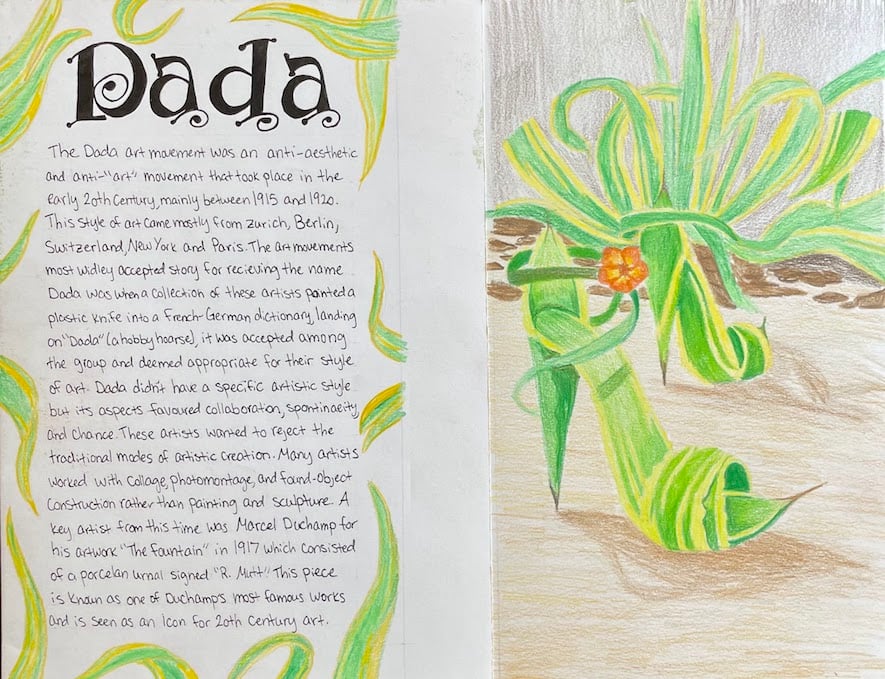 Dada
The Dada art movement was an anti-aesthetic
and anti-"art" movement that took place in the
early 20th Century, mainly between 1915 and 1920.
This style of art came mostly from Zurich, Berlin,
Switzerland, New York and Paris. The art movements
most widley accepted story for recieving the name
Dada was when a collection of these artists pointed a
plastic knife into a French-German dictionary, landing
on "Dada" (a hobby hoarse), it was accepted among
the group and deemed appropriate for their style
of art. Dada didn't have a specific artistic style
but its aspects favoured collaboration, spontinaeity,
and chance. These artists wanted to reject the
traditional modes of artistic creation. Many artists
worked with collage, photomontage, and found-object
construction rather than painting and sculpture. A
key artist from this time was Marcel Duchamp for
his artwork "The Fountain" in 1917 which consisted
of a porcelan urnal signed "R. Mutt." This piece
is known as one of Duchamps most famous works
and is seen as an icon for 20th Century art.